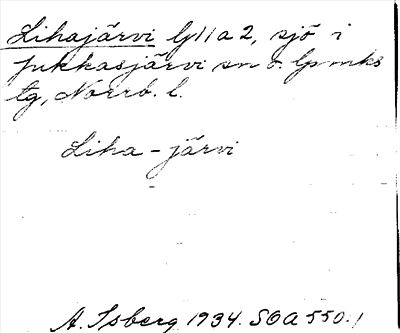 Lihajärvi lj 11 a 2, sjö i
Jukkasjärvi sn o. lpmks
tg, Norrb. l.
Liha - järvi
A. Isberg 1934. SOA 550:1